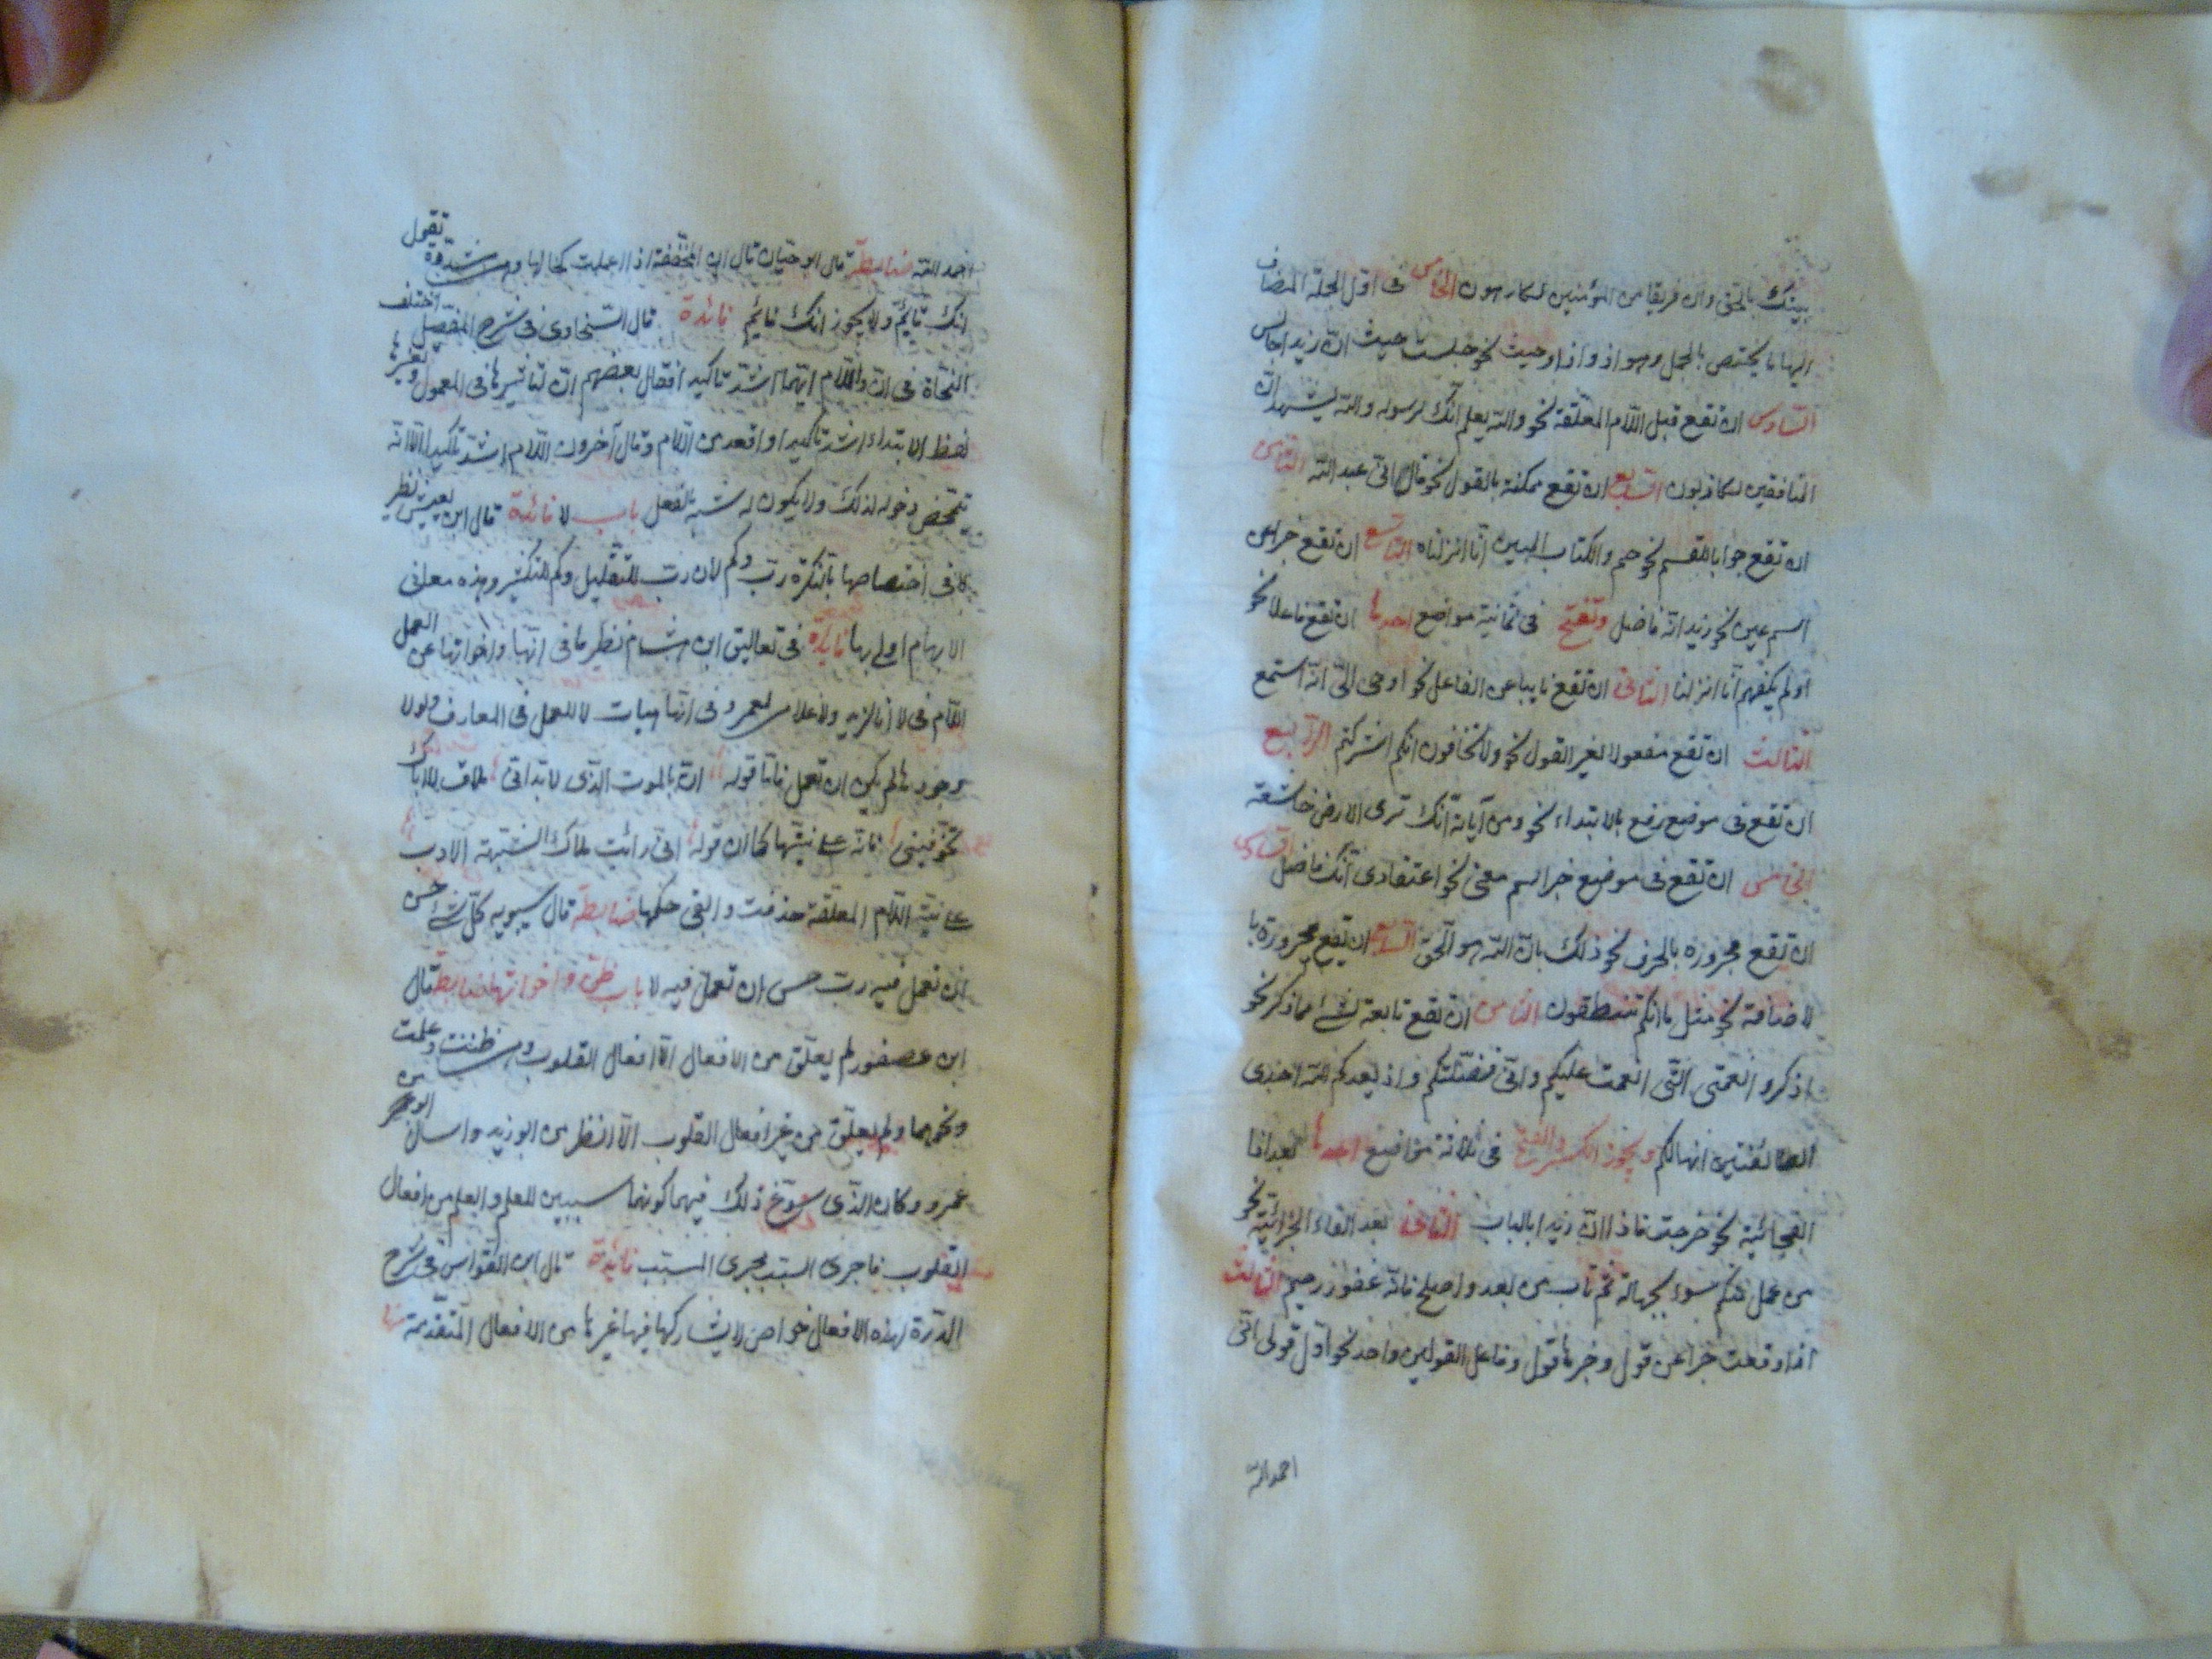 بيتك بالحق وان فريقا من المؤمنين لكارهون الخامس فى اول الجملة المضاف
اليها ما يختص بالجمل وهو اذ واذا وحيث نحو جلست حيث ان زيدا جالس
السادس ان تقع قبل اللام المعلقة نحو والله يعلم انك لرسوله والله يشهد ان
المنافقين لكاذبون السابع ان تقع محكية بالقول نحو قال انى عبد الله الثامن
ان تقع جوابا للقسم نحو حم والكتاب المبين انا انزلناه التاسع ان تقع خبرا عن
اسم عين نحو زيد انه فاضل وتفتح فى ثمانية مواضع احدها ان تقع فاعلا نحو
اولم يكفهم انا انزلنا الثانى ان تقع نايبا عن الفاعل نحو اوحى الى انه استمع
الثالث ان تقع مفعولا لغير القول نحو ولا تخافون انكم اشركتم الرابع
ان تقع فى موضع رفع بالابتداء نحو ومن آياته انك ترى الارض خاشعة
الخامس ان تقع فى موضع خبر اسم معنى نحو اعتقادى انك فاضل السادس
ان تقع مجرورة بالحرف نحو ذلك بان الله هو الحق السابع ان تقع مجرورة با
لاضافة نحو مثل ما انكم تنطقون الثامن ان تقع تابعة لشئ مما ذكر نحو
اذكروا نعمتى التى انعمت عليكم وانى فضلتكم واذ يعدكم الله احدى
الطائفتين انها لكم ويجوز الكسر والفتح فى ثلاثة مواضع احدها بعد اذا
الفجائية نحو خرجت فاذا ان زيدا بالباب الثانى بعد الفاء الجزائية نحو
من عمل منكم سوء بجهالة ثم تاب من بعده واصلح فانه غفور رحيم الثالث
اذا وقعت خبرا عن قول وخبرها قول وفاعل القولين واحد نحو اول قولى انى
احمد الله
احمد الله ضابطة قال ابو حيان قال ان المخففة اذا اعملت كحالها وهى مشددة تقول
انك قائم ولا يجوز انك قائم فائدة قال السخاوى فى شرح المفصل اختلف
النحاة فى ان واللام ايهما اشد تاكيدا فقال بعضهم ان لتاثيرها فى المعمول وتغييرها
لفظ الابتداء اشد تاكيدا واقعد من اللام وقال آخرون اللام اشد تاكيدا لانه
يتمحض دخوله لذلك ولا يكون له شبه بالفعل باب لا فائدة قال ابن يعيش نظير
لا فى اختصاصها بالنكرة رب وكم لان رب للتقليل وكم للتكثير وهذه معانى
الابهام اولى بها فايدة فى تعاليق ابن هشام نظير ما فى انها واخواتها عن العمل
اللام فى لا ابا لزيد ولا غلامى لعمرو فى انها هيات لا للعمل فى المعارف ولولا
وجودها لم يكن ان تعمل فاما قوله ان بالموت الذى لا بد انى ملاق لا اباك
تخوفينى فانه على نيتها كما ان قوله انى رايت ملاك الشيمة الادب
على نية اللام المعلقة حذفت وابقى حكمها ضابطة قال سيبويه كل شئ حسن
ان تعمل فيه رب حسن ان تعمل فيه لا باب ظن واخواتها ضابطة قال
ابن عصفور لم يعلق من الافعال الا افعال القلوب وهى ظننت وعلمت
ونحوهما ولم يعلق من غير افعال القلوب الا انظر من ابو زيد واسال من ابو
عمرو وكان الذى سوغ ذلك فيهما كونهما سببين للعلم والعلم من افعال
القلوب فاجرى السبب مجرى المسبب فائدة قال ابن القواس فى شرح
الدرة لهذه الافعال خواص لا يشاركها فيها غيرها من الافعال المتقدمة منها